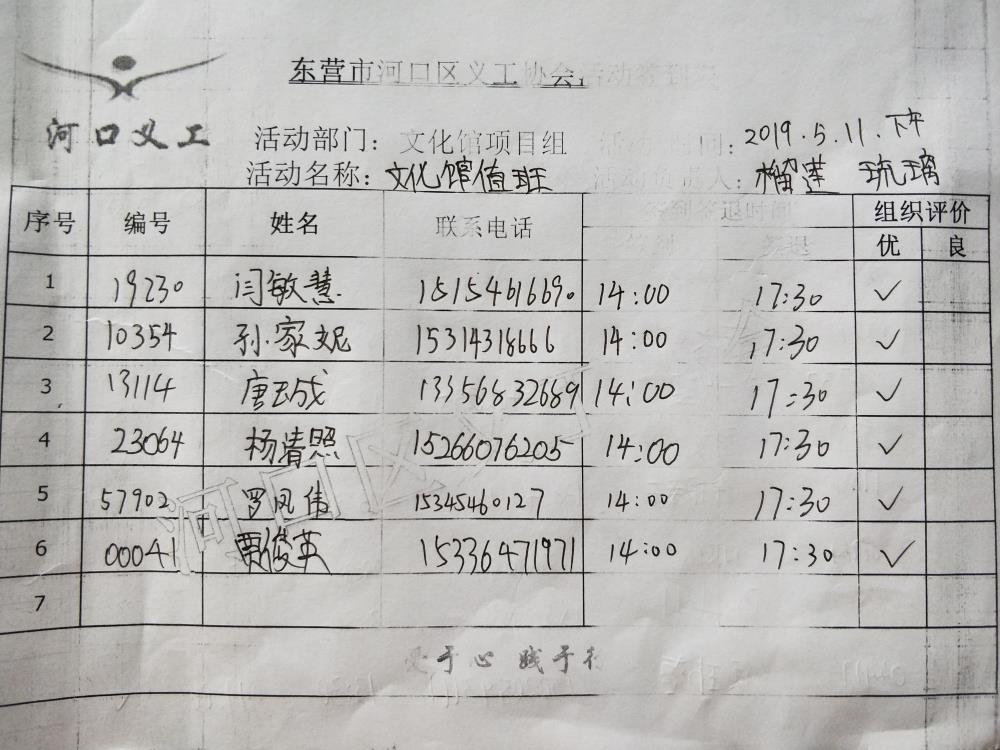 东营市河口区义工协会活动签到表
河口义工
活动部门：文化馆项目组 活动时间：2019.5.11.下午
活动名称：文化馆值班 活动负责人：榴莲 琉璃
序号 编号 姓名 联系电话 签到签退时间 组织评价
签到 签退 优 良
1 19230 闫敏慧 15154616690 14:00 17:30 ✓
2 10354 孙家妮 15314318666 14:00 17:30 ✓
3 13114 唐玉成 13356832689 14:00 17:30 ✓
4 23064 杨清照 15266076205 14:00 17:30 ✓
5 57902 罗凤伟 15345460127 14:00 17:30 ✓
6 00041 贾俊英 15336471971 14:00 17:30 ✓
7
河口区义工
心 践于行